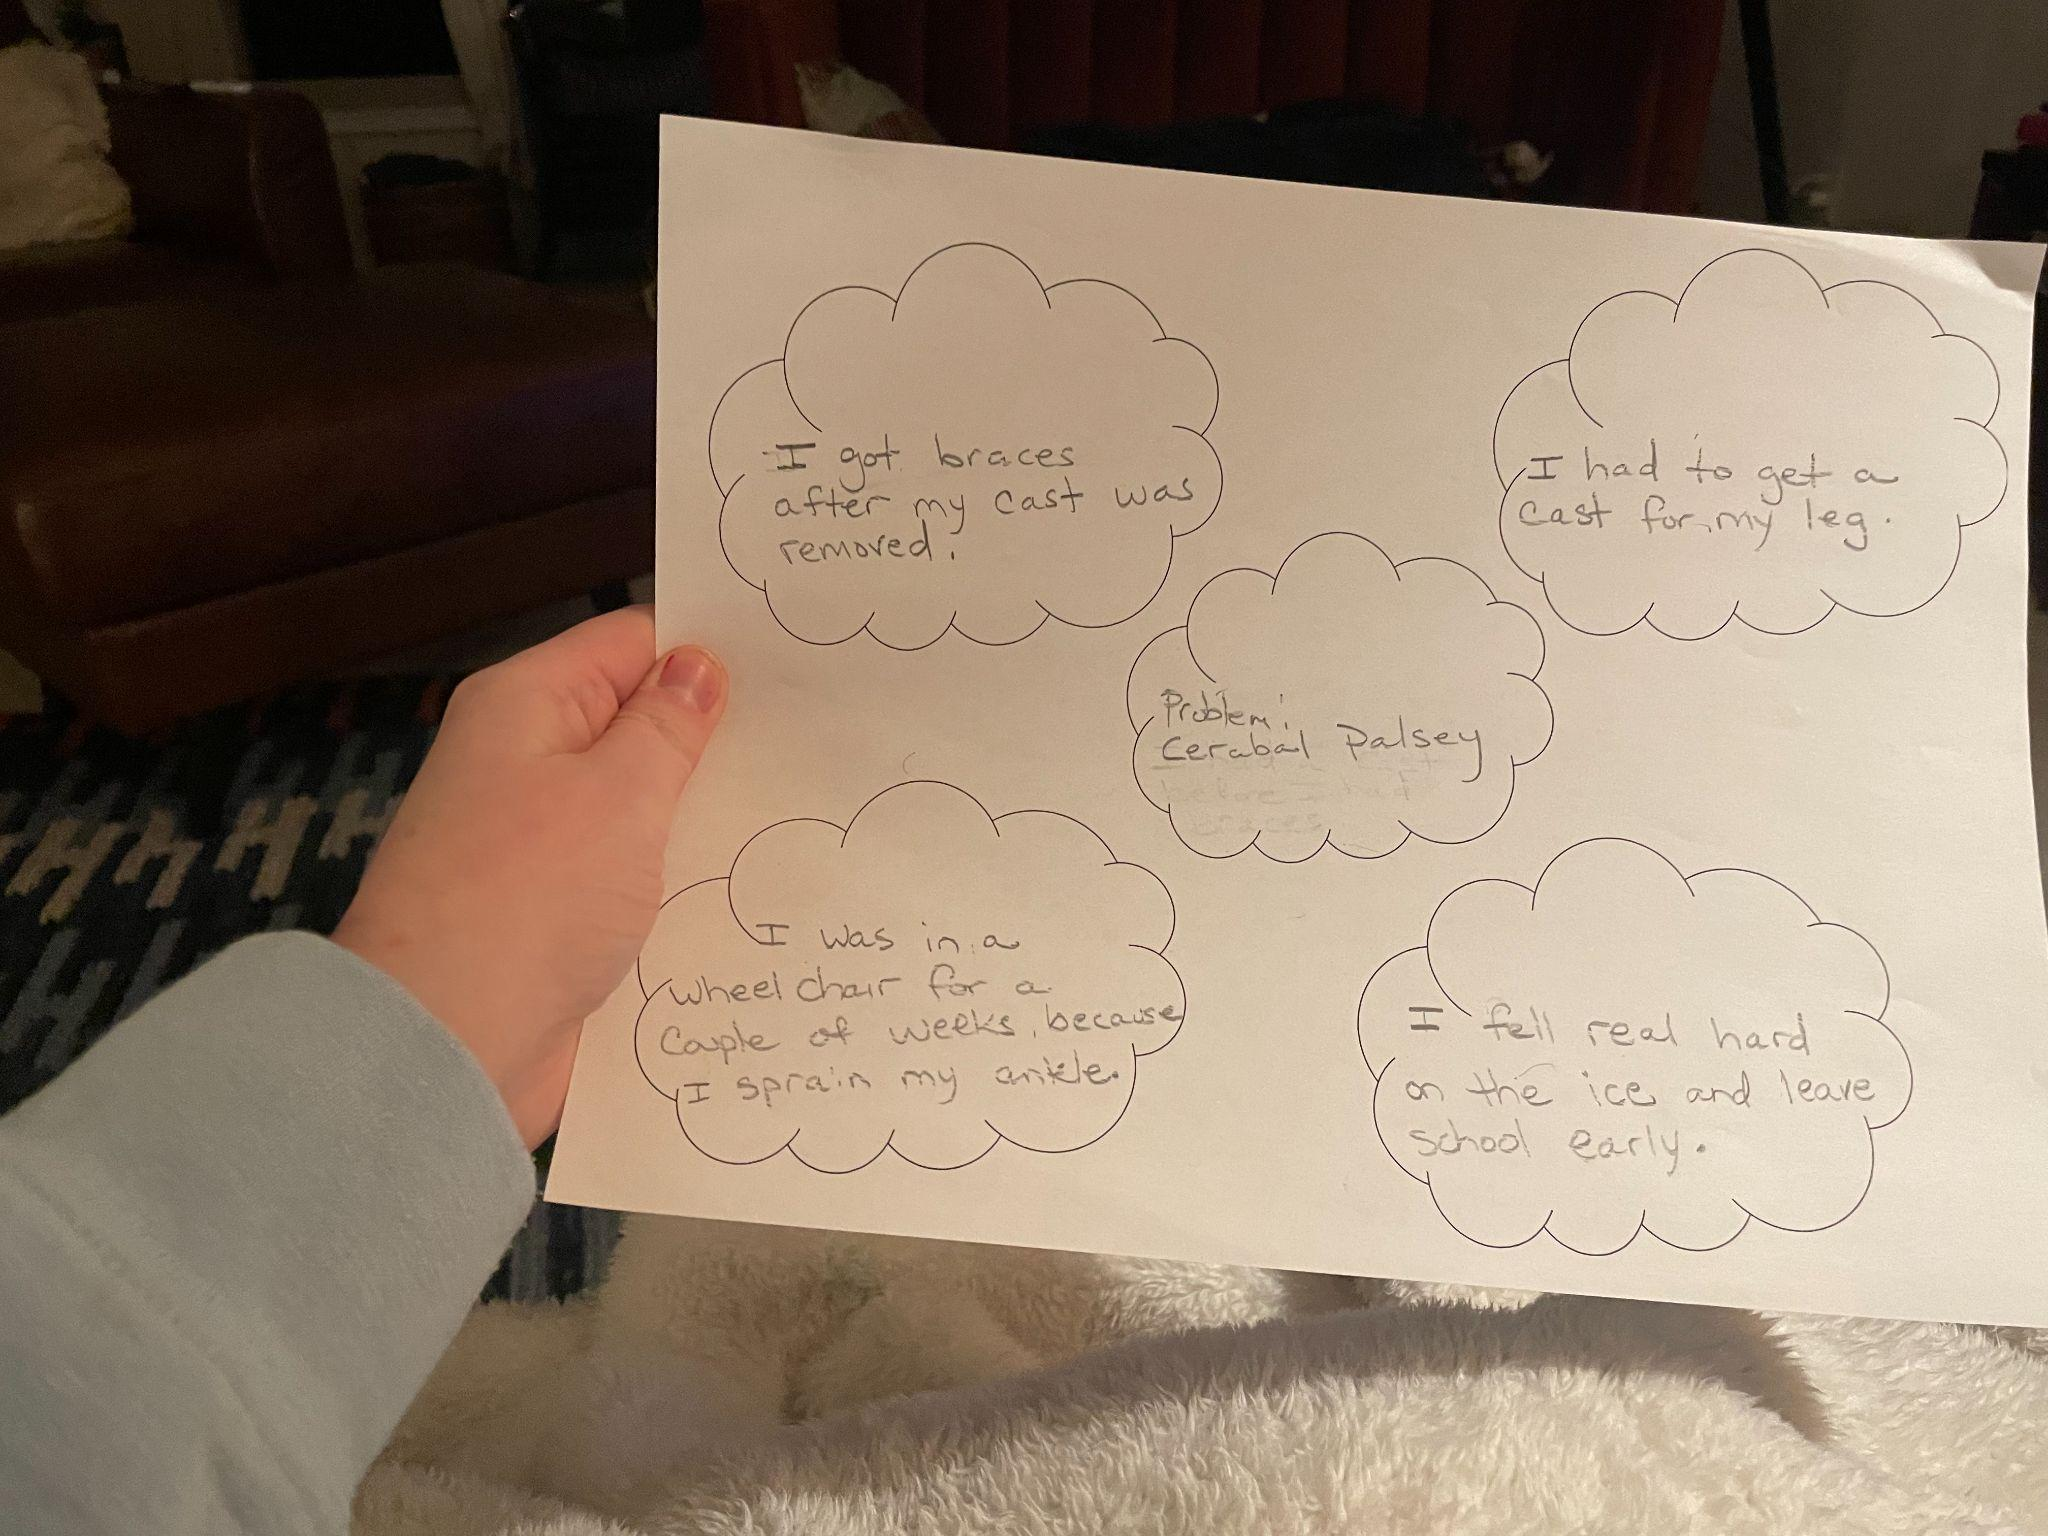 I got braces
after my cast was
removed.
I had to get a
cast for my leg.
Problem:
Cerabal Palsey
before I had
braces
I was in a
wheel chair for a
Couple of weeks, because
I sprain my ankle.
I fell real hard
on the ice and leave
school early.